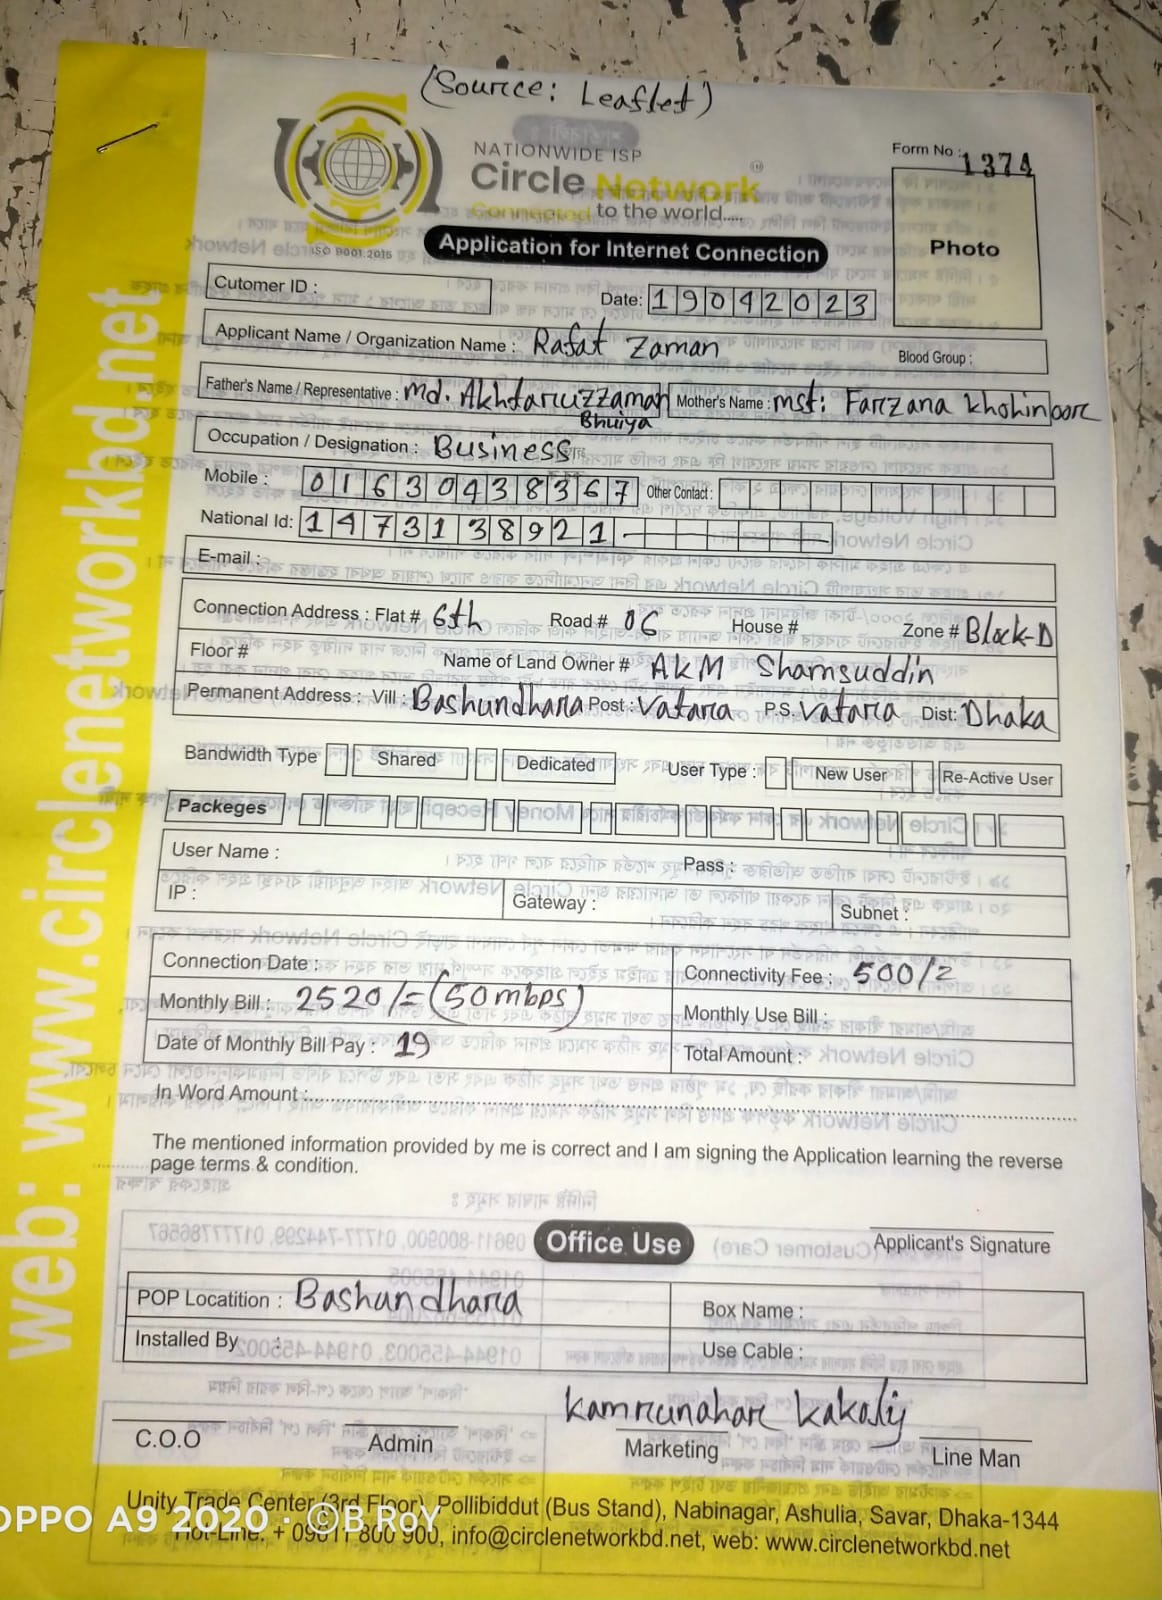 (Source: Leaflet)
NATIONWIDE ISP
Circle Network
Connected to the world.....
ISO 9001:2015
Form No : 1374
Photo
Application for Internet Connection
Cutomer ID :
Date: 19042023
Applicant Name / Organization Name : Rafat Zaman
Blood Group :
Father's Name / Representative : Md. Akhtaruzzaman Bhuiya
Mother's Name : Mst: Farzana Khohinoor
Occupation / Designation : Business
Mobile : 01630438367 Other Contact :
National Id: 1473138921
E-mail :
Connection Address : Flat # 6th Road # 06 House # Zone # Block-D
Floor # Name of Land Owner # AKM Shamsuddin
Permanent Address : Vill : Bashundhara Post : Vatara P.S. Vatara Dist: Dhaka
Bandwidth Type Shared Dedicated User Type : New User Re-Active User
Packeges
User Name : Pass :
IP : Gateway : Subnet :
Connection Date : Connectivity Fee : 500/=
Monthly Bill : 2520/= (50mbps) Monthly Use Bill :
Date of Monthly Bill Pay : 19 Total Amount :
In Word Amount :
The mentioned information provided by me is correct and I am signing the Application learning the reverse
page terms & condition.
Applicant's Signature
Office Use
POP Locatition : Bashundhara Box Name :
Installed By : Use Cable :
Kamrunahar Kakaly
C.O.O Admin Marketing Line Man
Unity Trade Center (3rd Floor), Pollibiddut (Bus Stand), Nabinagar, Ashulia, Savar, Dhaka-1344
Hot-Line: + 09611 800 900, info@circlenetworkbd.net, web: www.circlenetworkbd.net
web: www.circlenetworkbd.net
OPPO A9 2020 · ©B RoY